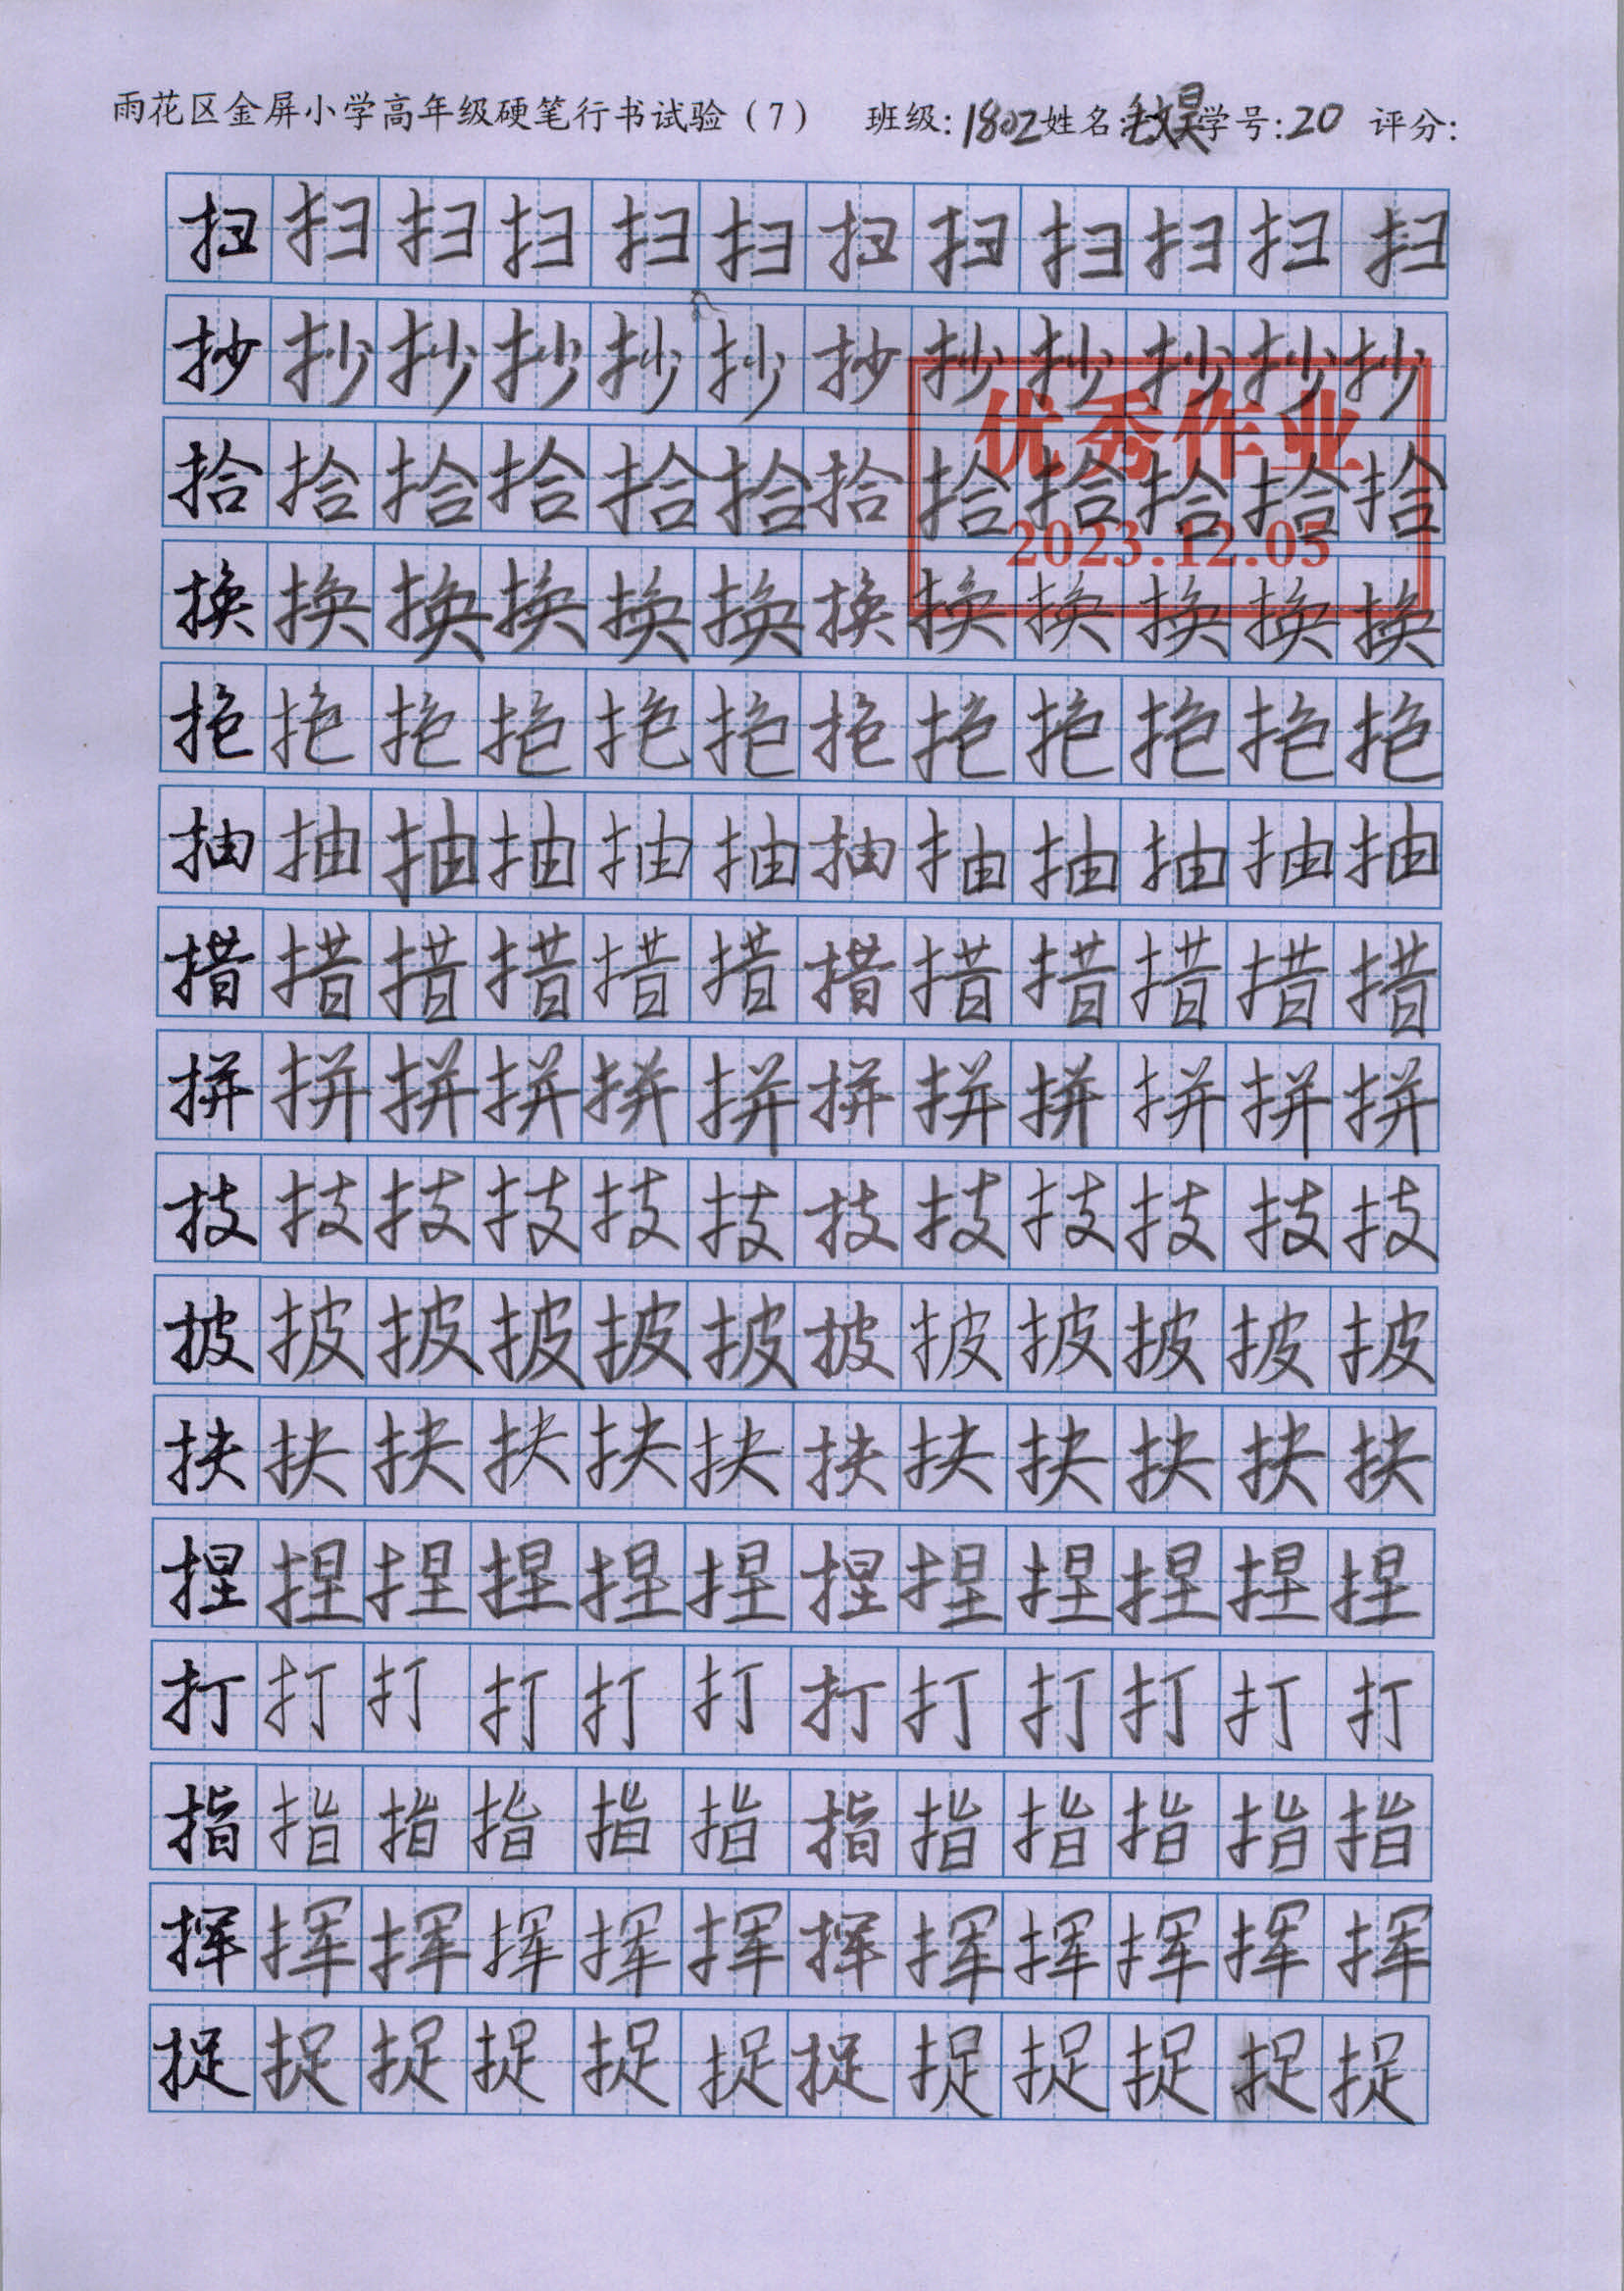 雨花区金屏小学高年级硬笔行书试验（7） 班级:1802 姓名: 学号:20 评分:
扫扫扫扫扫扫扫扫扫扫扫扫
抄抄抄抄抄抄抄抄抄抄抄抄
优秀作业
拾拾拾拾拾拾拾拾拾拾拾拾
2023.12.05
换换换换换换换换换换换换
抱抱抱抱抱抱抱抱抱抱抱抱
抽抽抽抽抽抽抽抽抽抽抽抽
措措措措措措措措措措措措
拼拼拼拼拼拼拼拼拼拼拼拼
技技技技技技技技技技技技
披披披披披披披披披披披披
扶扶扶扶扶扶扶扶扶扶扶扶
捏捏捏捏捏捏捏捏捏捏捏捏
打打打打打打打打打打打打
指指指指指指指指指指指指
挥挥挥挥挥挥挥挥挥挥挥挥
捉捉捉捉捉捉捉捉捉捉捉捉